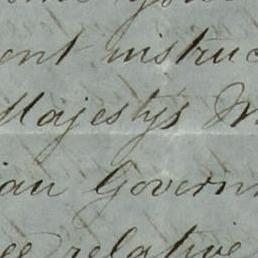 ent instruc
Majestys M
ian Governm
relative